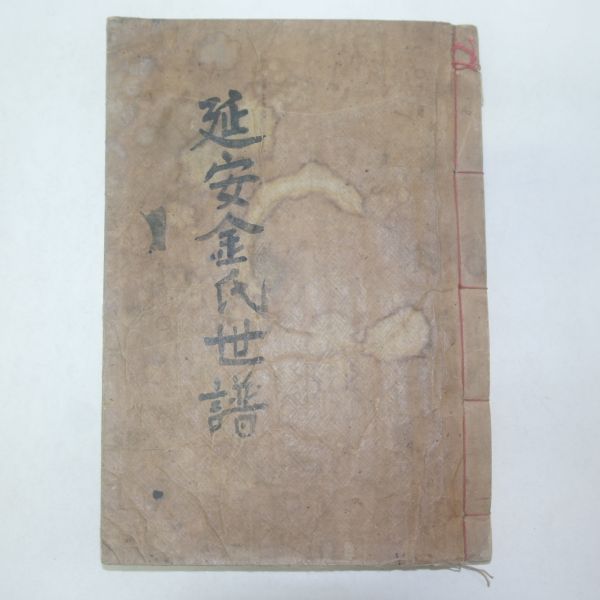 延安金氏世譜